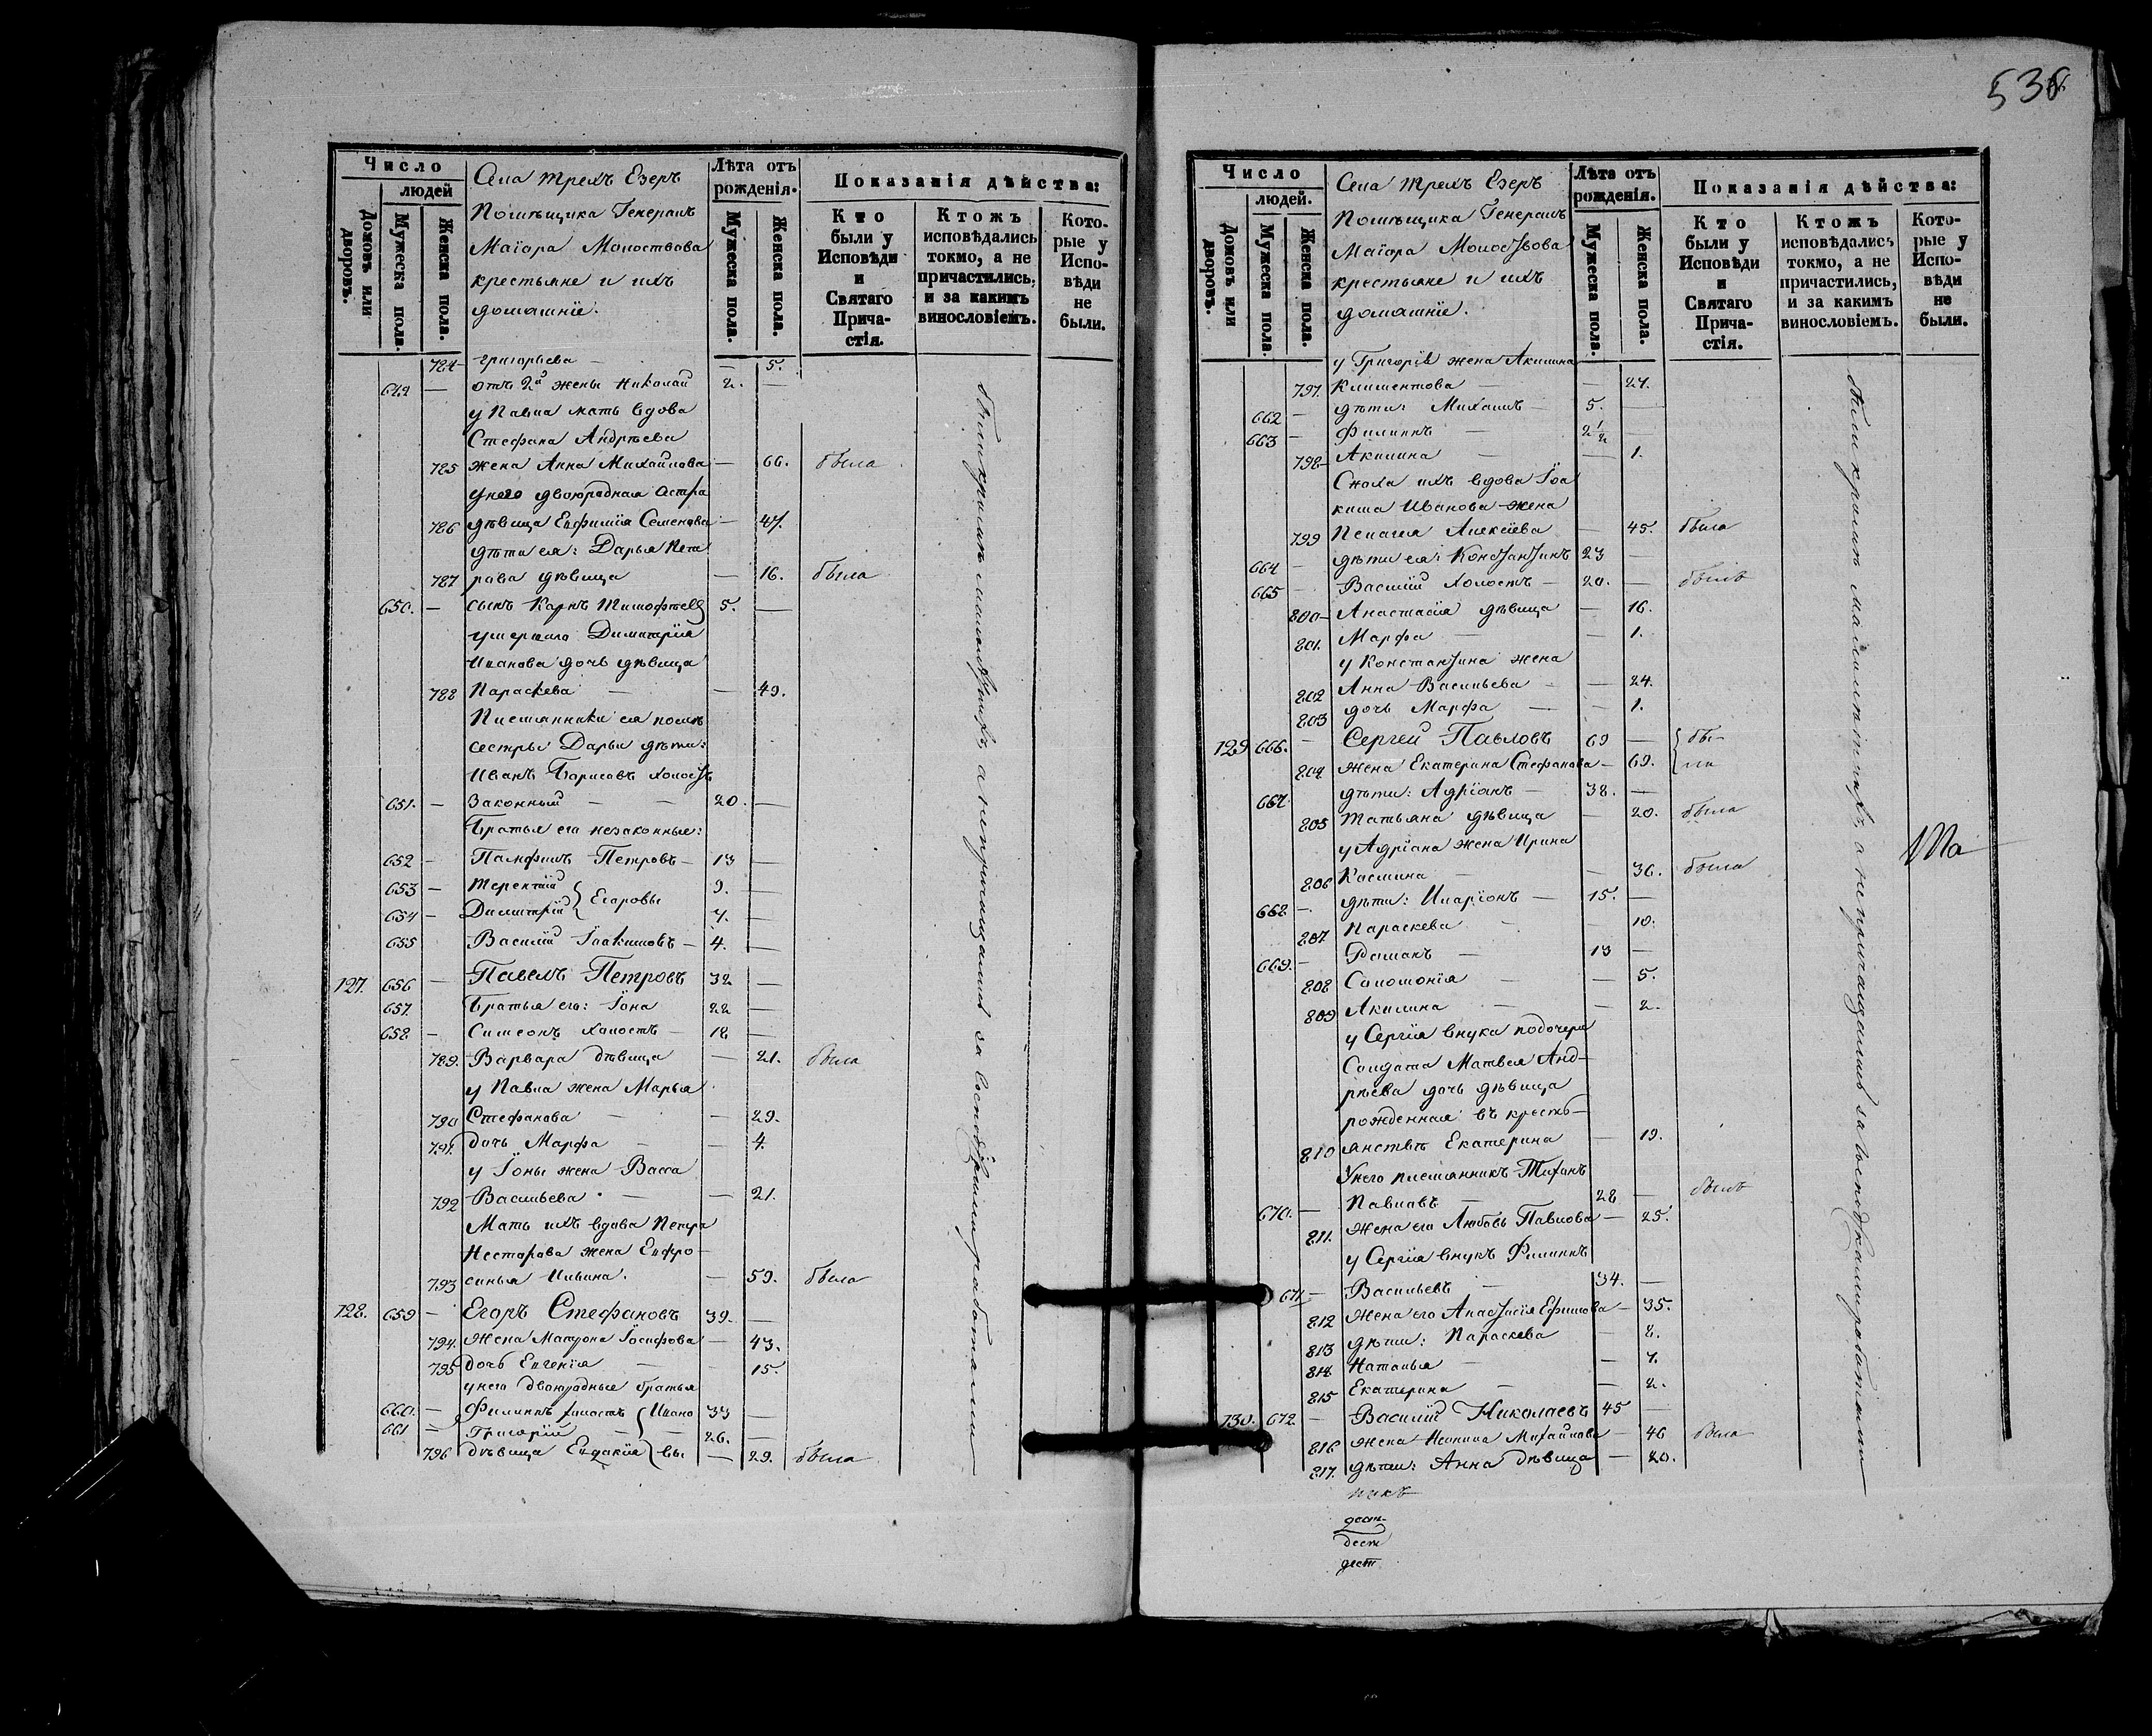 538
Число
людей
Домовъ или дворовъ.
Мужеска пола.
Женска пола.
Села трехъ Езеръ
Помѣщика Генералъ
Маіора Молоствова
крестьяне и ихъ
домашніе.
Лѣта отъ рожденія.
Мужеска пола.
Женска пола.
Показанія дѣйства:
Кто были у Исповѣди и Святаго Причастія.
Ктожъ исповѣдались токмо, а не причастились, и за какимъ винословіемъ.
Которые у Исповѣди не были.
784 Григорьева — — 5.
649 — отъ 2й жены Николай 2. —
у Павла мать вдова
Стефана Андрѣева
785 жена Анна Михайлова — 66. была
у него двоюродная сестра
786 дѣвица Евфимія Семенова — 47.
дѣти ея: Дарья Пет
787 рова дѣвица — 16. была
650. — сынъ Карпъ Тимофѣевъ 5. —
умершаго Димитрія
Иванова дочь дѣвица
788 Параскева — — 49.
Племянники ея
сестры Дарьи дѣти:
Иванъ Борисовъ холостъ
651. — Законный — — 20. —
Братья его незаконные:
652 — Памфилъ Петровъ — 13 —
653 — Терентій } Егоровы 9. —
654 — Димитрій 7. —
655 Василій Іоакимовъ — 4. —
127. 656 — Павелъ Петровъ 32 —
657. Братья его: Іона 22 —
658 — Симеонъ холостъ — 18 —
789. Варвара дѣвица — 21. была
у Павла жена Марья
790 Стефанова — — 29.
791. дочь Марфа — — 4.
у Іоны жена Васса
792 Васильева — — 21.
Мать ихъ вдова Петра
Нестерова жена Евфро
793 синья Ильина. — 59. была
128. 659 — Егоръ Стефановъ 39. —
794. Жена Матрона Іосифова — 43.
795 дочь Евгенія — — 15.
у него двоюродные братья
660. — Филиппъ холостъ { Ивано 33 —
661 — Григорій — — 26. —
796 дѣвица Евдокія } вы — 29. была
были кромѣ малолѣтнихъ, а непричащались за господскими работами
Число
людей.
Домовъ или дворовъ.
Мужеска пола.
Женска пола.
Села трехъ Езеръ
Помѣщика Генералъ
Маіора Молоствова
крестьяне и ихъ
домашніе.
Лѣта отъ рожденія.
Мужеска пола.
Женска пола.
Показанія дѣйства:
Кто были у Исповѣди и Святаго Причастія.
Ктожъ исповѣдались токмо, а не причастились, и за какимъ винословіемъ.
Которые у Исповѣди не были.
у Григорія жена Акилина
797. Климентова — — 27.
662 — дѣти: Михаилъ — 5. —
663 — Филиппъ — 2 1/2 —
798 — Акилина — — 1.
Сноха ихъ вдова Іоа
кима Иванова жена
799 Пелагея Алексѣева — 45. была
664 — дѣти ея: Константинъ 23 —
665 — Василій холостъ — 20. — былъ
800 — Анастасія дѣвица — 16.
801. Марфа — — 1.
у Константина жена
802 Анна Васильева — — 24.
803 дочь Марфа — — 1.
129 666. — Сергей Павловъ 69 — { бы-
804 жена Екатерина Стефанова — 69. { ли
667. дѣти: Адріанъ — 38. —
805 Татьяна дѣвица — 20. была
у Адріана жена Ирина
806 Космина — — 36. была
668 — дѣти: Иларіонъ — 15. —
807 Параскева — 10.
669. — Романъ — 13 —
808 Соломонія — — 5.
809 Акилина — — 2.
у Сергія внука по дочери
Солдата Матвея Анд-
рѣева дочь дѣвица
рожденная въ кресть-
810 янствѣ Екатерина — 19.
У него племянникъ Тиханъ
670. — Павловъ — 28 — былъ
811. Жена его Любовь Павлова — 25.
у Сергія внукъ Филиппъ
671 — Васильевъ — 34. —
812 Жена его Анастасія Ефимова — 35.
813 дѣти: Параскева — 8.
814 Наталья — — 7.
815 Екатерина — — 2.
130. 672. — Василій Николаевъ 45 —
816 Жена Неонила Михайлова — 46 была
817. дѣти: Анна дѣвица — 20.
были кромѣ малолѣтнихъ, а непричащались за господскими работами